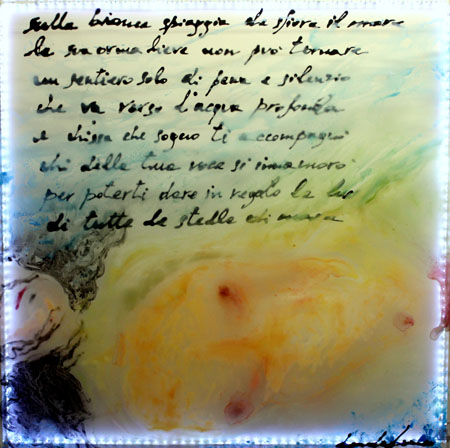 sulla bianca spiaggia che sfiora il mare
la sua orma lieve non può tornare
un sentiero solo di pena e silenzio
che va verso l'acqua profonda
e chissa che sogno ti accompagnò
chi della tua voce si innamorò
per poterti dare in regalo la luc
di tutte le stelle di mare